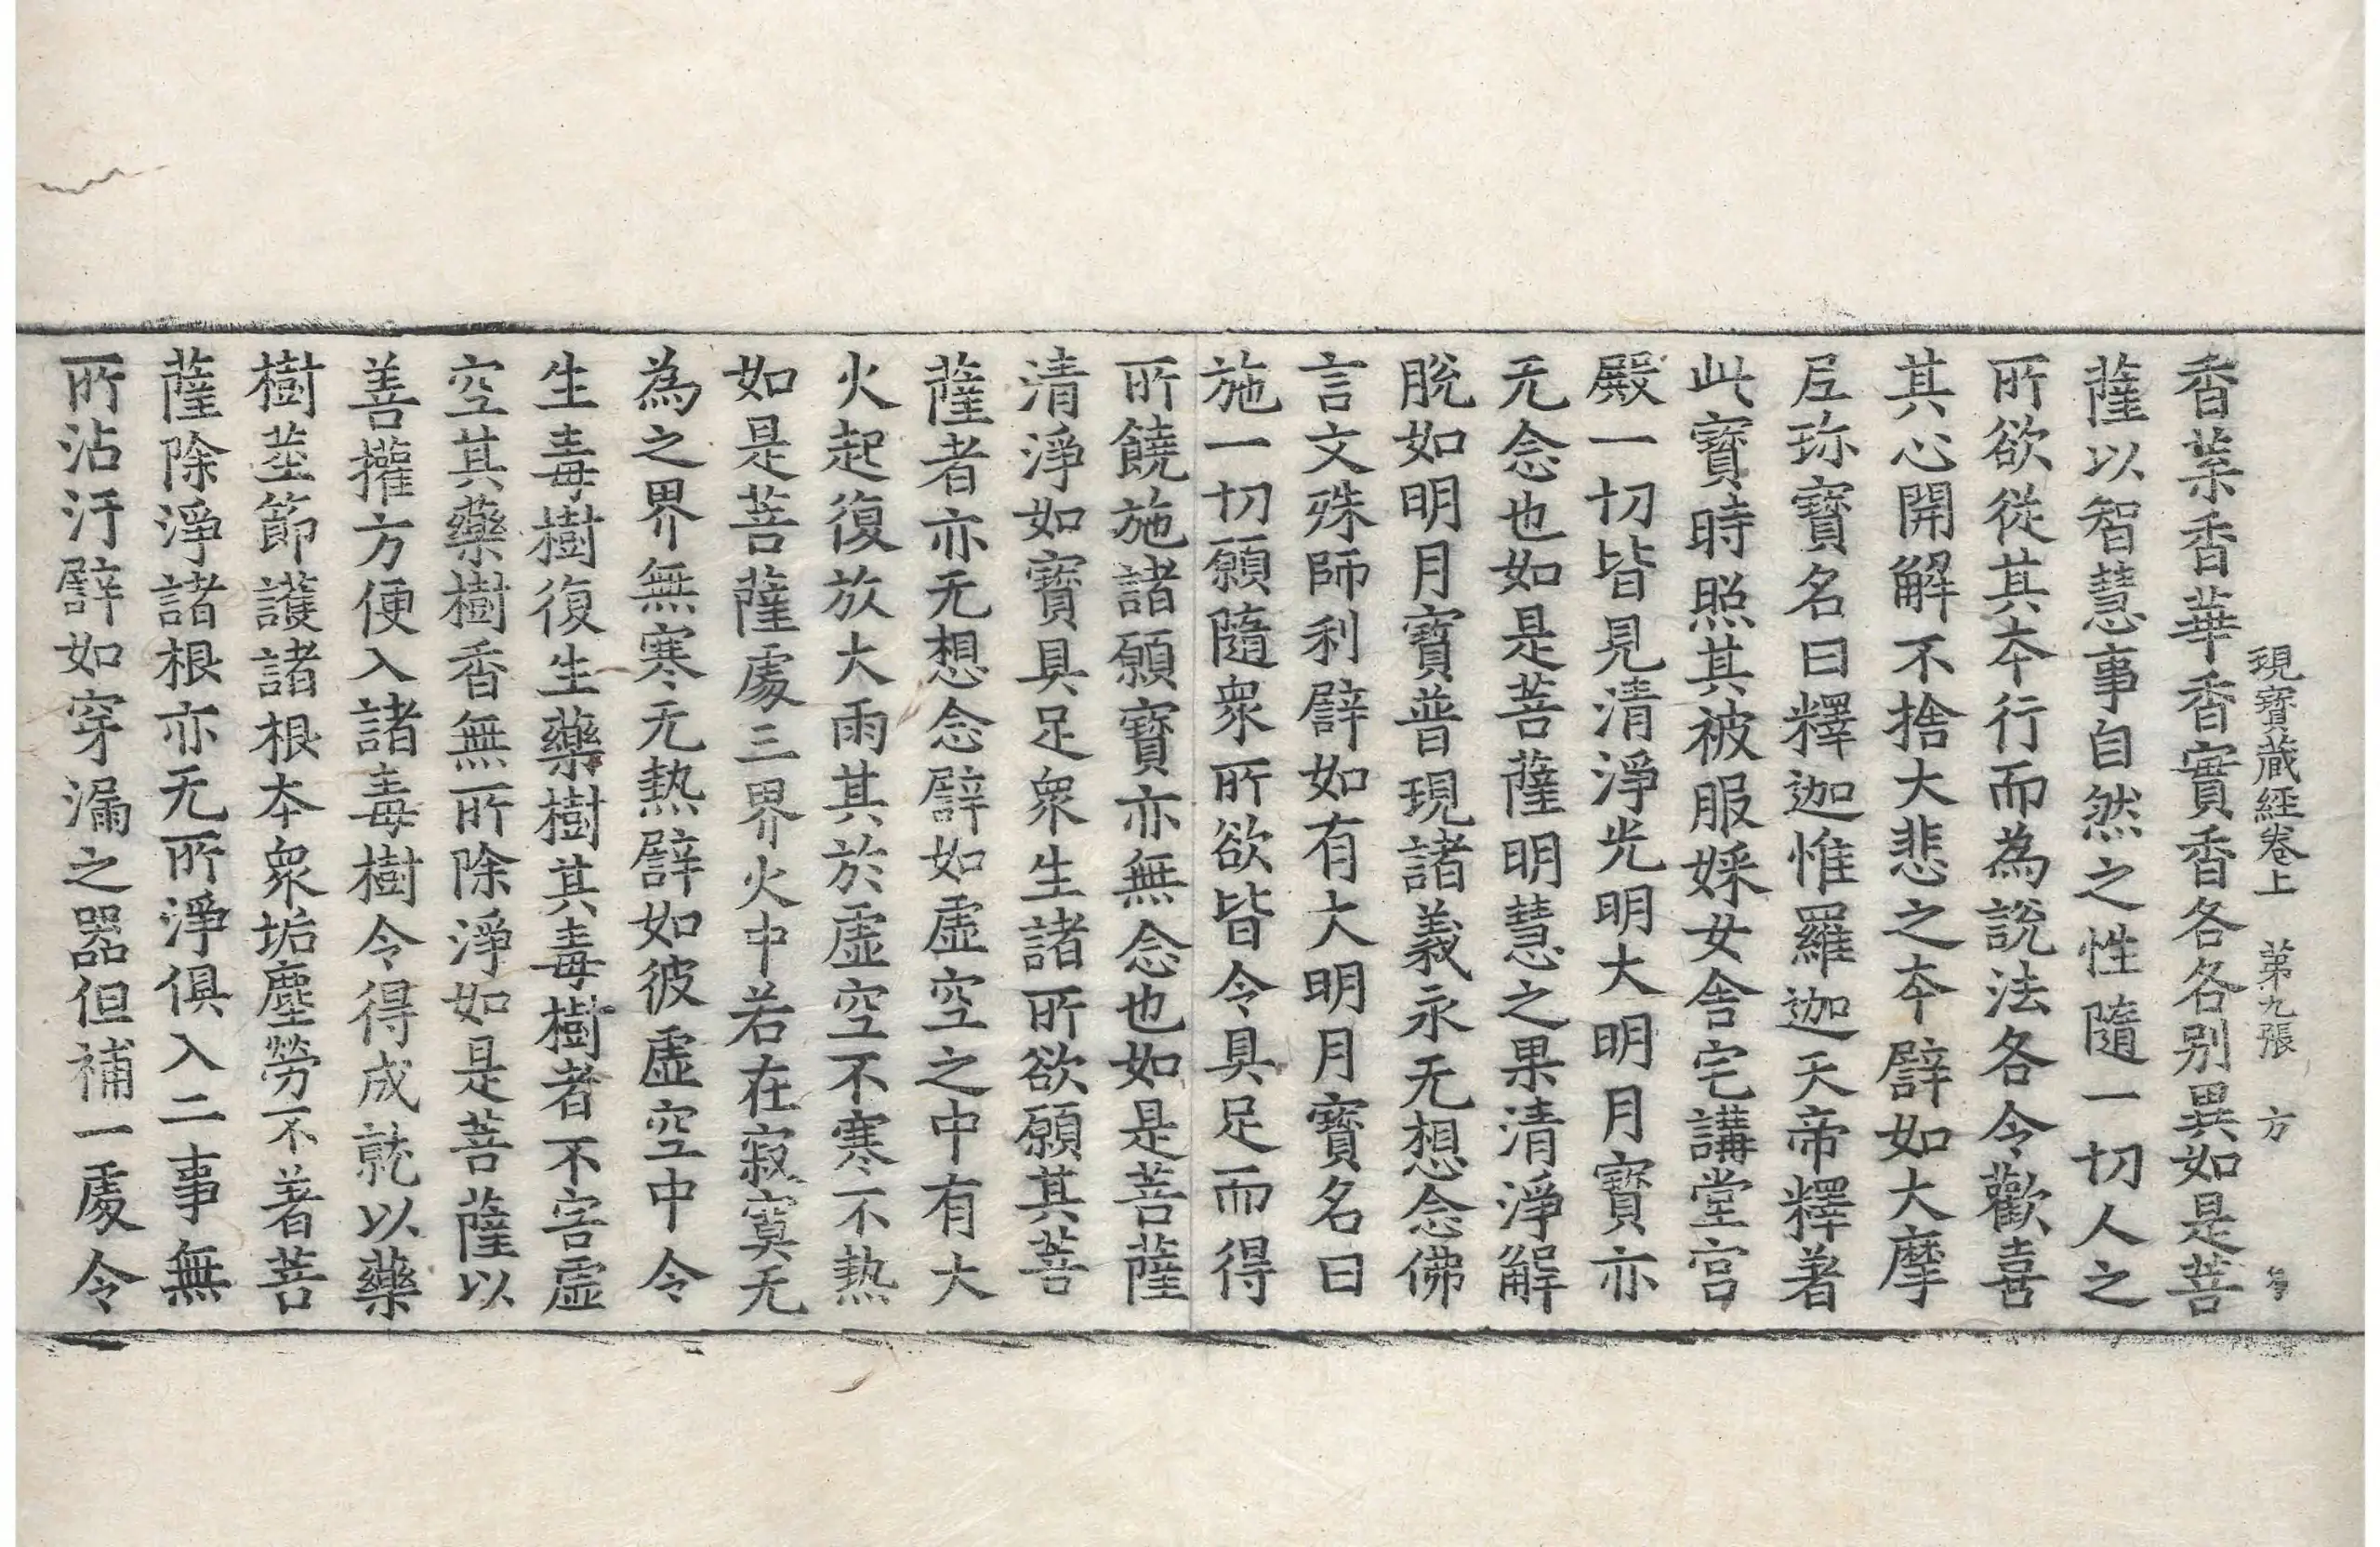 現寶藏經卷上 第九張 方
香葉香華香實香各各别異如是菩
薩以智慧事自然之性隨一切人之
所欲從其夲行而為說法各令歡喜
其心開解不捨大悲之夲譬如大摩
尼珎寶名曰釋迦惟羅迦天帝釋著
此寶時照其被服婇女舎宅講堂宫
殿一切皆見清淨光明大明月寶亦
无念也如是菩薩明慧之果清淨解
脫如明月寶普現諸義永无想念佛
言文殊師利譬如有大明月寶名曰
施一切願隨衆所欲皆令具足而得
所饒施諸願寶亦無念也如是菩薩
清淨如寶具足衆生諸所欲願其菩
薩者亦无想念譬如虛空之中有大
火起復放大雨其於虛空不寒不熱
如是菩薩處三界火中若在寂寞无
為之界無寒无熱譬如彼虛空中令
生毒樹復生藥樹其毒樹者不害虛
空其藥樹香無所除淨如是菩薩以
善權方便入諸毒樹令得成就以藥
樹莖節護諸根夲衆垢塵勞不著菩
薩除淨諸根亦无所淨俱入二事無
所沾汙譬如穿漏之器但補一處令